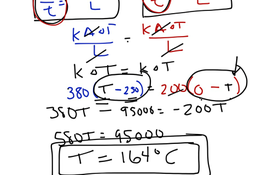 t L t L
kA∆T/L = kA∆T/L
k∆T = k∆T
380(T - 250) = 200(0 - T)
380T - 95000 = -200T
580T = 95000
T = 164°C